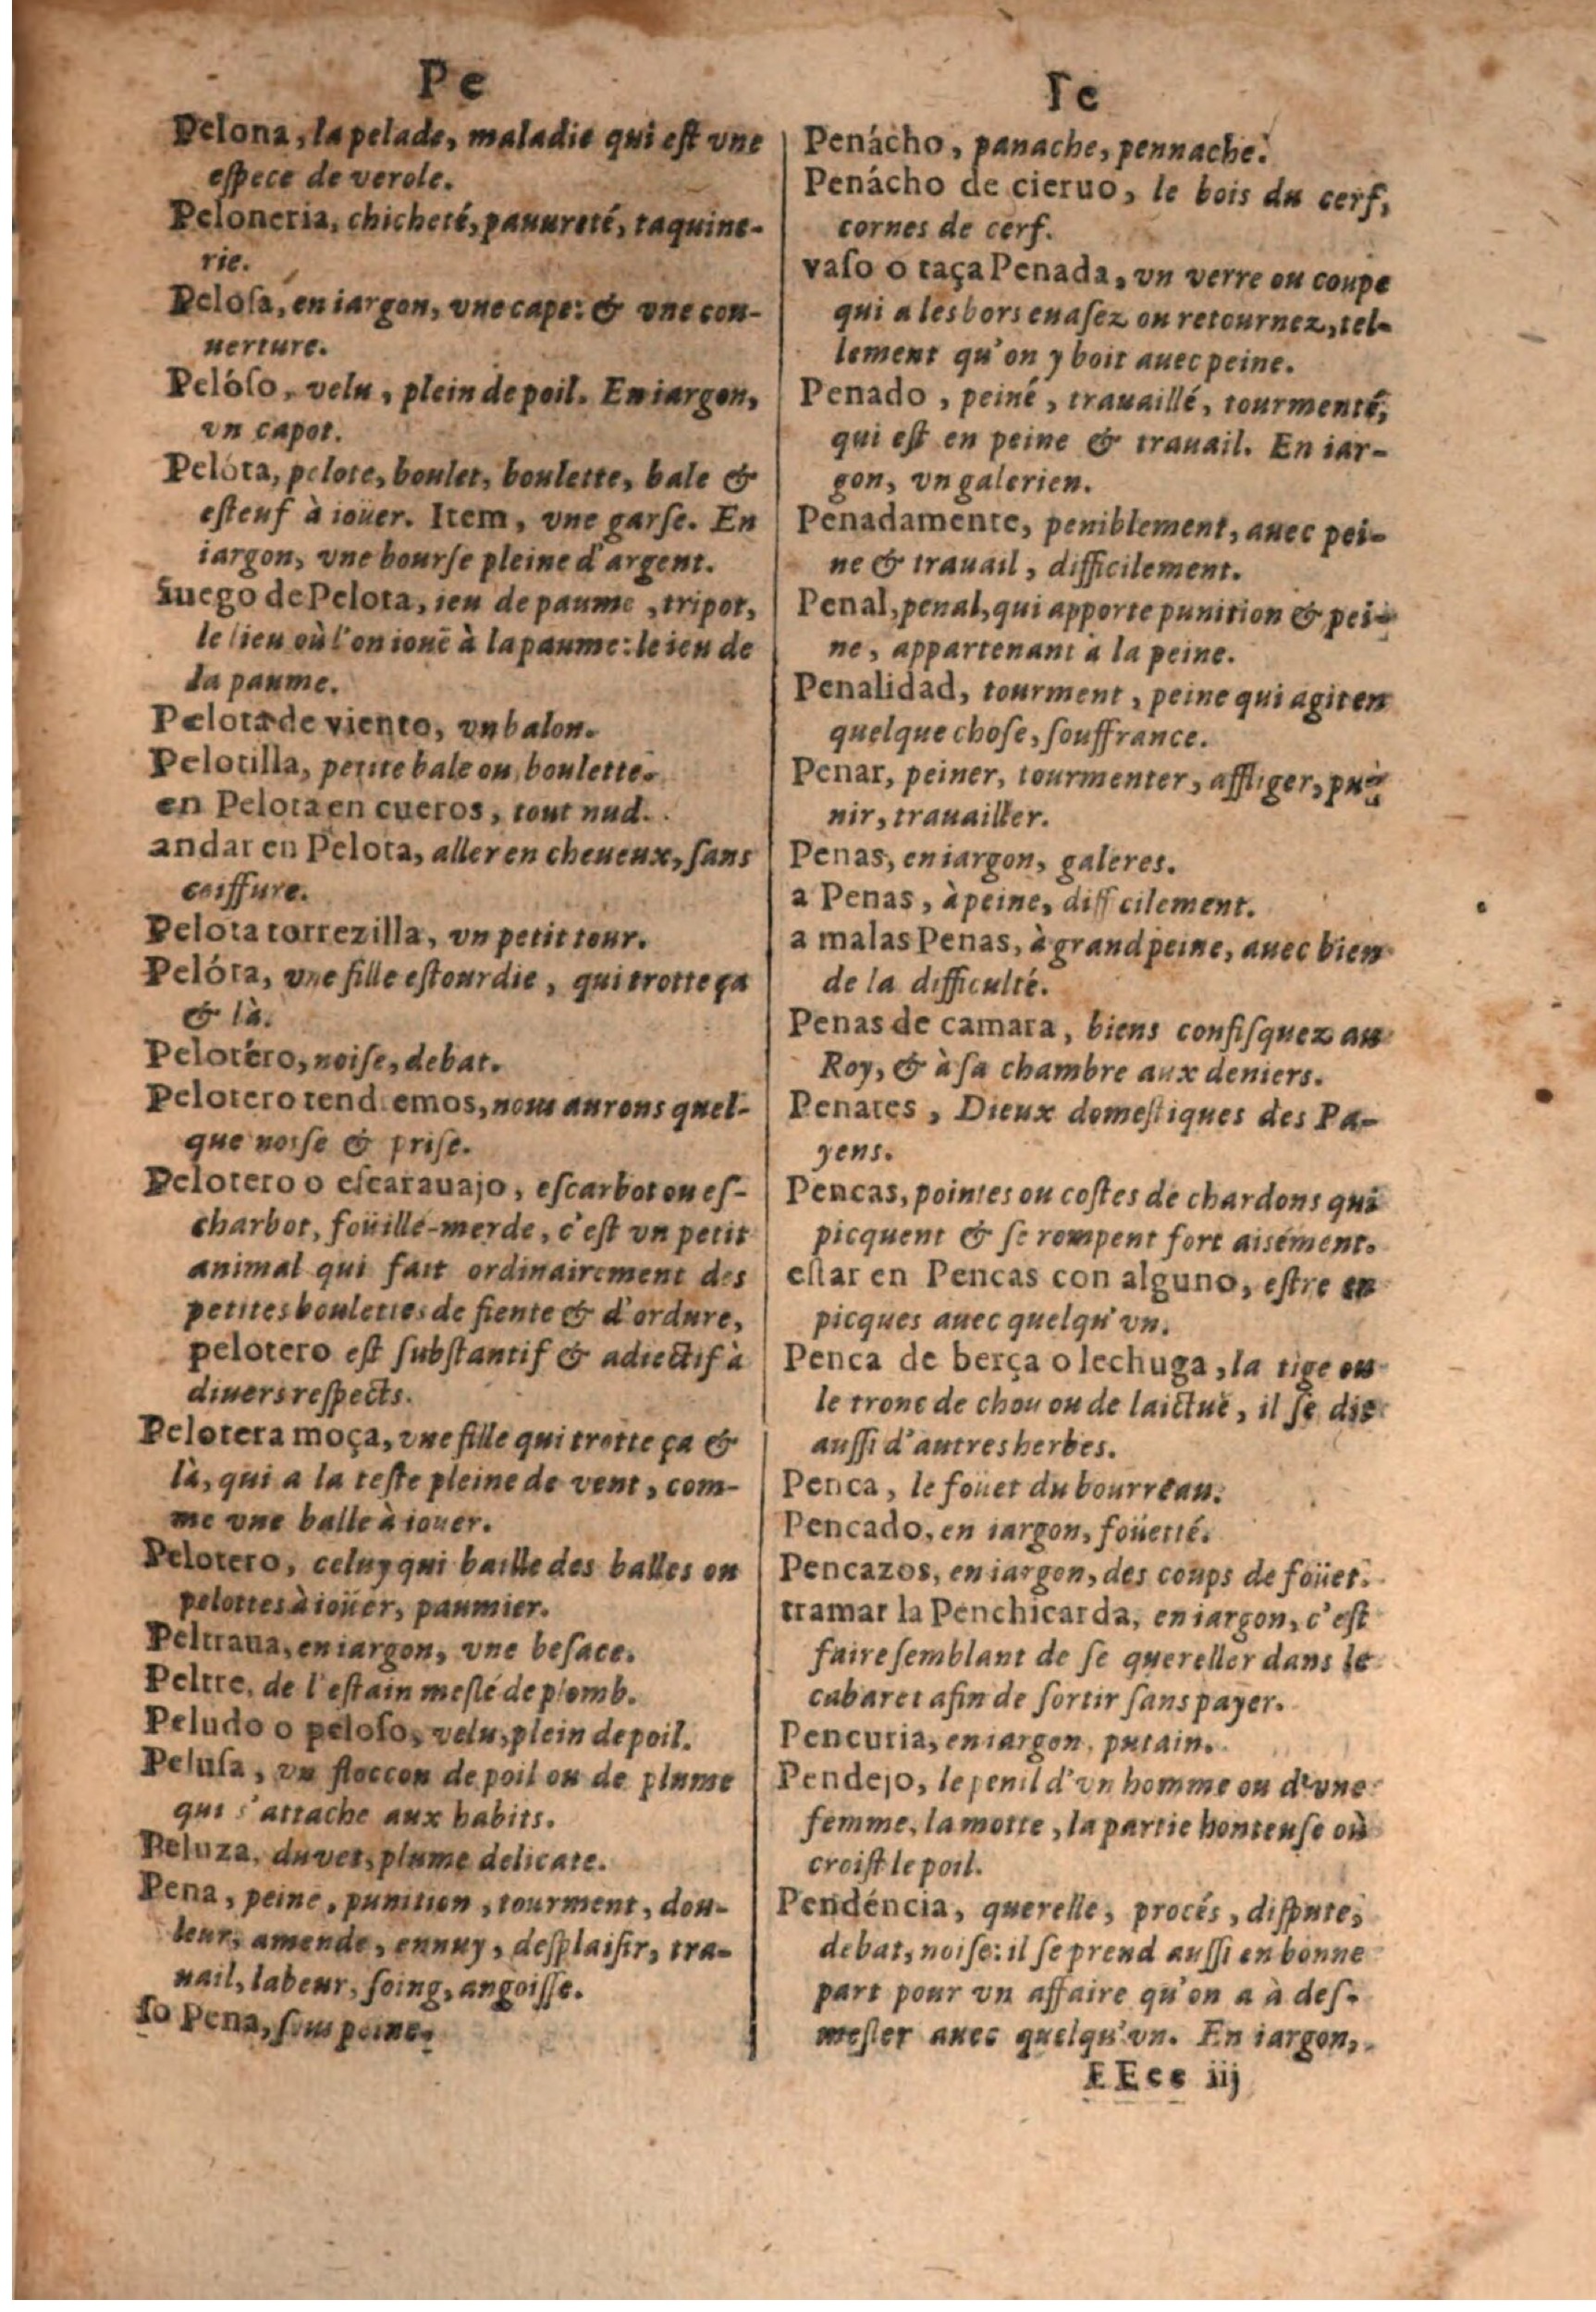 Pe
Pelona, la pelade, maladie qui eſt vne
eſpece de verole.
Peloneria, chicheté, pauureté, taquine-
rie.
Peloſa, en iargon, vne cape: & vne cou-
uerture.
Pelóſo, velu, plein de poil. En iargon,
vn capot.
Pelóta, pelote, boulet, boulette, bale &
eſteuf à ioüer. Item, vne garſe. En
iargon, vne bourſe pleine d'argent.
Iuego de Pelota, ieu de paume, tripot,
le lieu où l'on iouë à la paume: le ieu de
la paume.
Pelota de viento, vn balon.
Pelotilla, petite bale ou boulette.
en Pelota en cueros, tout nud.
andar en Pelota, aller en cheueux, ſans
coiffure.
Pelota torrezilla, vn petit tour.
Pelóta, vne fille eſtourdie, qui trotte ça
& là.
Pelotéro, noiſe, debat.
Pelotero tendremos, nous aurons quel-
que noiſe & priſe.
Pelotero o eſcarauajo, eſcarbot ou eſ-
charbot, foüille-merde, c'eſt vn petit
animal qui fait ordinairement des
petites boulettes de fiente & d'ordure,
pelotero eſt ſubſtantif & adiectif à
diuers reſpects.
Pelotera moça, vne fille qui trotte ça &
là, qui a la teſte pleine de vent, com-
me vne balle à iouer.
Pelotero, celuy qui baille des balles ou
pelottes à ioüer, paumier.
Peltraua, en iargon, vne beſace.
Peltre, de l'eſtain meſlé de plomb.
Peludo o peloſo, velu, plein de poil.
Peluſa, vn floccon de poil ou de plume
qui s'attache aux habits.
Peluza, duvet, plume delicate.
Pena, peine, punition, tourment, dou-
leur, amende, ennuy, deſplaiſir, tra-
uail, labeur, ſoing, angoiſſe.
ſo Pena, ſous peine.
Pe
Penácho, panache, pennache.
Penácho de cieruo, le bois du cerf,
cornes de cerf.
vaſo o taça Penada, vn verre ou coupe
qui a les bors euaſez ou retournez, tel-
lement qu'on y boit auec peine.
Penado, peiné, trauaillé, tourmenté,
qui eſt en peine & trauail. En iar-
gon, vn galerien.
Penadamente, peniblement, auec pei-
ne & trauail, difficilement.
Penal, penal, qui apporte punition & pei-
ne, appartenant à la peine.
Penalidad, tourment, peine qui agit en
quelque choſe, ſouffrance.
Penar, peiner, tourmenter, affliger, pu-
nir, trauailler.
Penas, en iargon, galeres.
a Penas, à peine, difficilement.
a malas Penas, à grand peine, auec bien
de la difficulté.
Penas de camara, biens confiſquez au
Roy, & à ſa chambre aux deniers.
Penates, Dieux domeſtiques des Pa-
yens.
Pencas, pointes ou coſtes de chardons qui
picquent & ſe rompent fort aiſément.
eſtar en Pencas con alguno, eſtre en
picques auec quelqu'vn.
Penca de berça o lechuga, la tige ou
le tronc de chou ou de laictuë, il ſe dit
auſſi d'autres herbes.
Penca, le fouet du bourreau.
Pencado, en iargon, foüetté.
Pencazos, en iargon, des coups de foüet.
tramar la Penchicarda, en iargon, c'eſt
faire ſemblant de ſe quereller dans le
cabaret afin de ſortir ſans payer.
Pencuria, en iargon, putain.
Pendejo, le penil d'vn homme ou d'vne
femme, la motte, la partie honteuſe où
croiſt le poil.
Pendéncia, querelle, procés, diſpute,
debat, noiſe: il ſe prend auſſi en bonne
part pour vn affaire qu'on a à deſ-
meſler auec quelqu'vn. En iargon,
EEee iij